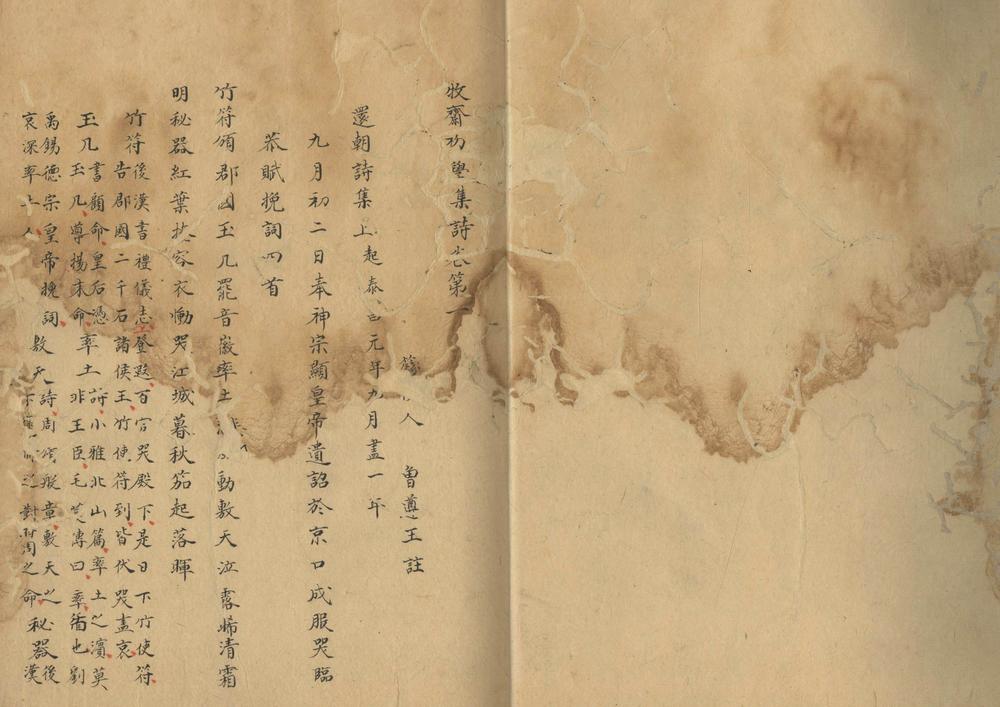 牧齋初學集詩註第一
人 魯遵王註
還朝詩集上起泰昌元年九月盡一年
九月初二日奉神宗顯皇帝遺詔於京口成服哭臨
恭賦挽詞四首
竹符頒郡國玉几罷音徽率土動敷天泣露晞清霜
明秘器紅葉扶容衣慟哭江城暮秋笳起落暉
竹符後漢書禮儀志登遐百官哭殿下是日下竹使符
告郡國二千石諸侯王竹使符到皆伏哭盡哀
玉几書顧命皇后憑玉几導揚末命率土詩小雅北山篇率土之濱莫
非王臣毛傳曰率循也劉
禹錫德宗皇帝挽詞敷天詩周頌般章敷天之
哀深率土人對時周之命秘器後漢